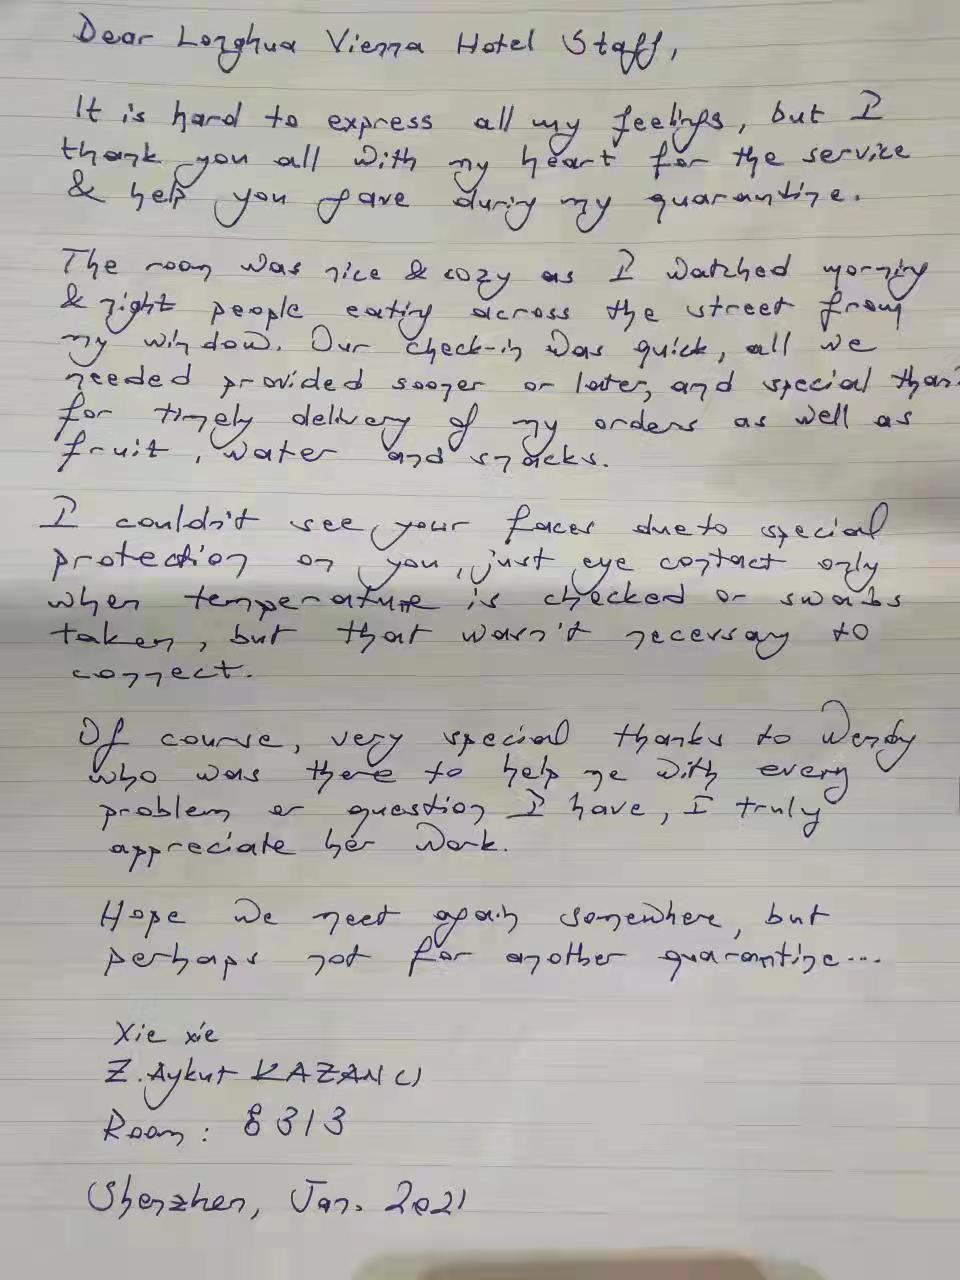 Dear Longhua Vienna Hotel Staff,
It is hard to express all my feelings, but I
thank you all with my heart for the service
& help you gave during my quarantine.
The room was nice & cozy as I watched morning
& night people eating across the street from
my window. Our check-in was quick, all we
needed provided sooner or later, and special than
for timely delivery of my orders as well as
fruit, water and snacks.
I couldn't see your faces due to special
protection on you, just eye contact only
when temperature is checked or swabs
taken, but that wasn't necessary to
connect.
Of course, very special thanks to Wendy
who was there to help me with every
problem or question I have, I truly
appreciate her work.
Hope we meet again somewhere, but
perhaps not for another quarantine...
Xie xie
Z. Aykut KAZANCI
Room: 8313
Shenzhen, Jan. 2021